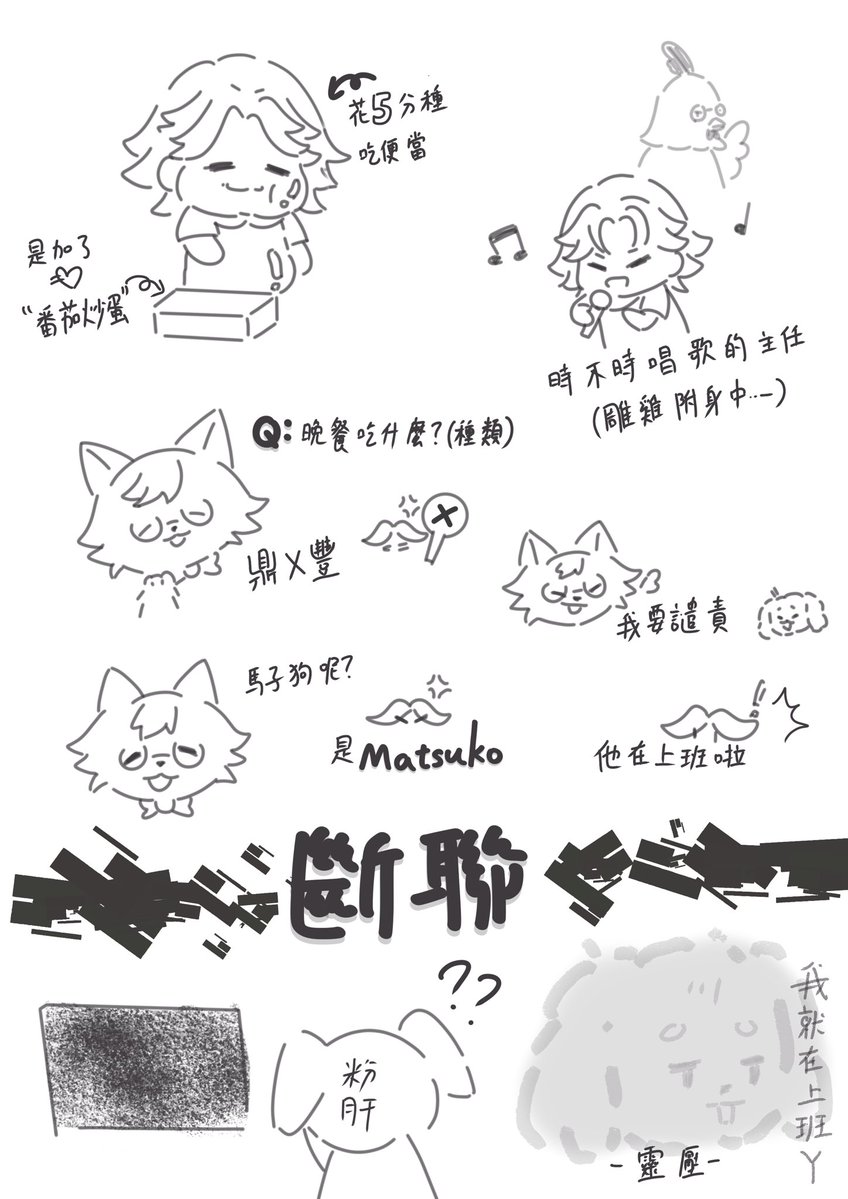 花5分種
吃便當
是加了
“番茄炒蛋”
時不時唱歌的主任
(雕雞附身中……)
Q:晚餐吃什麼?(種類)
鼎X豐
我要譴責
馬子狗呢?
是Matsuko
他在上班啦
斷聯
??
粉
肝
我就在上班ㄚ
-靈壓-